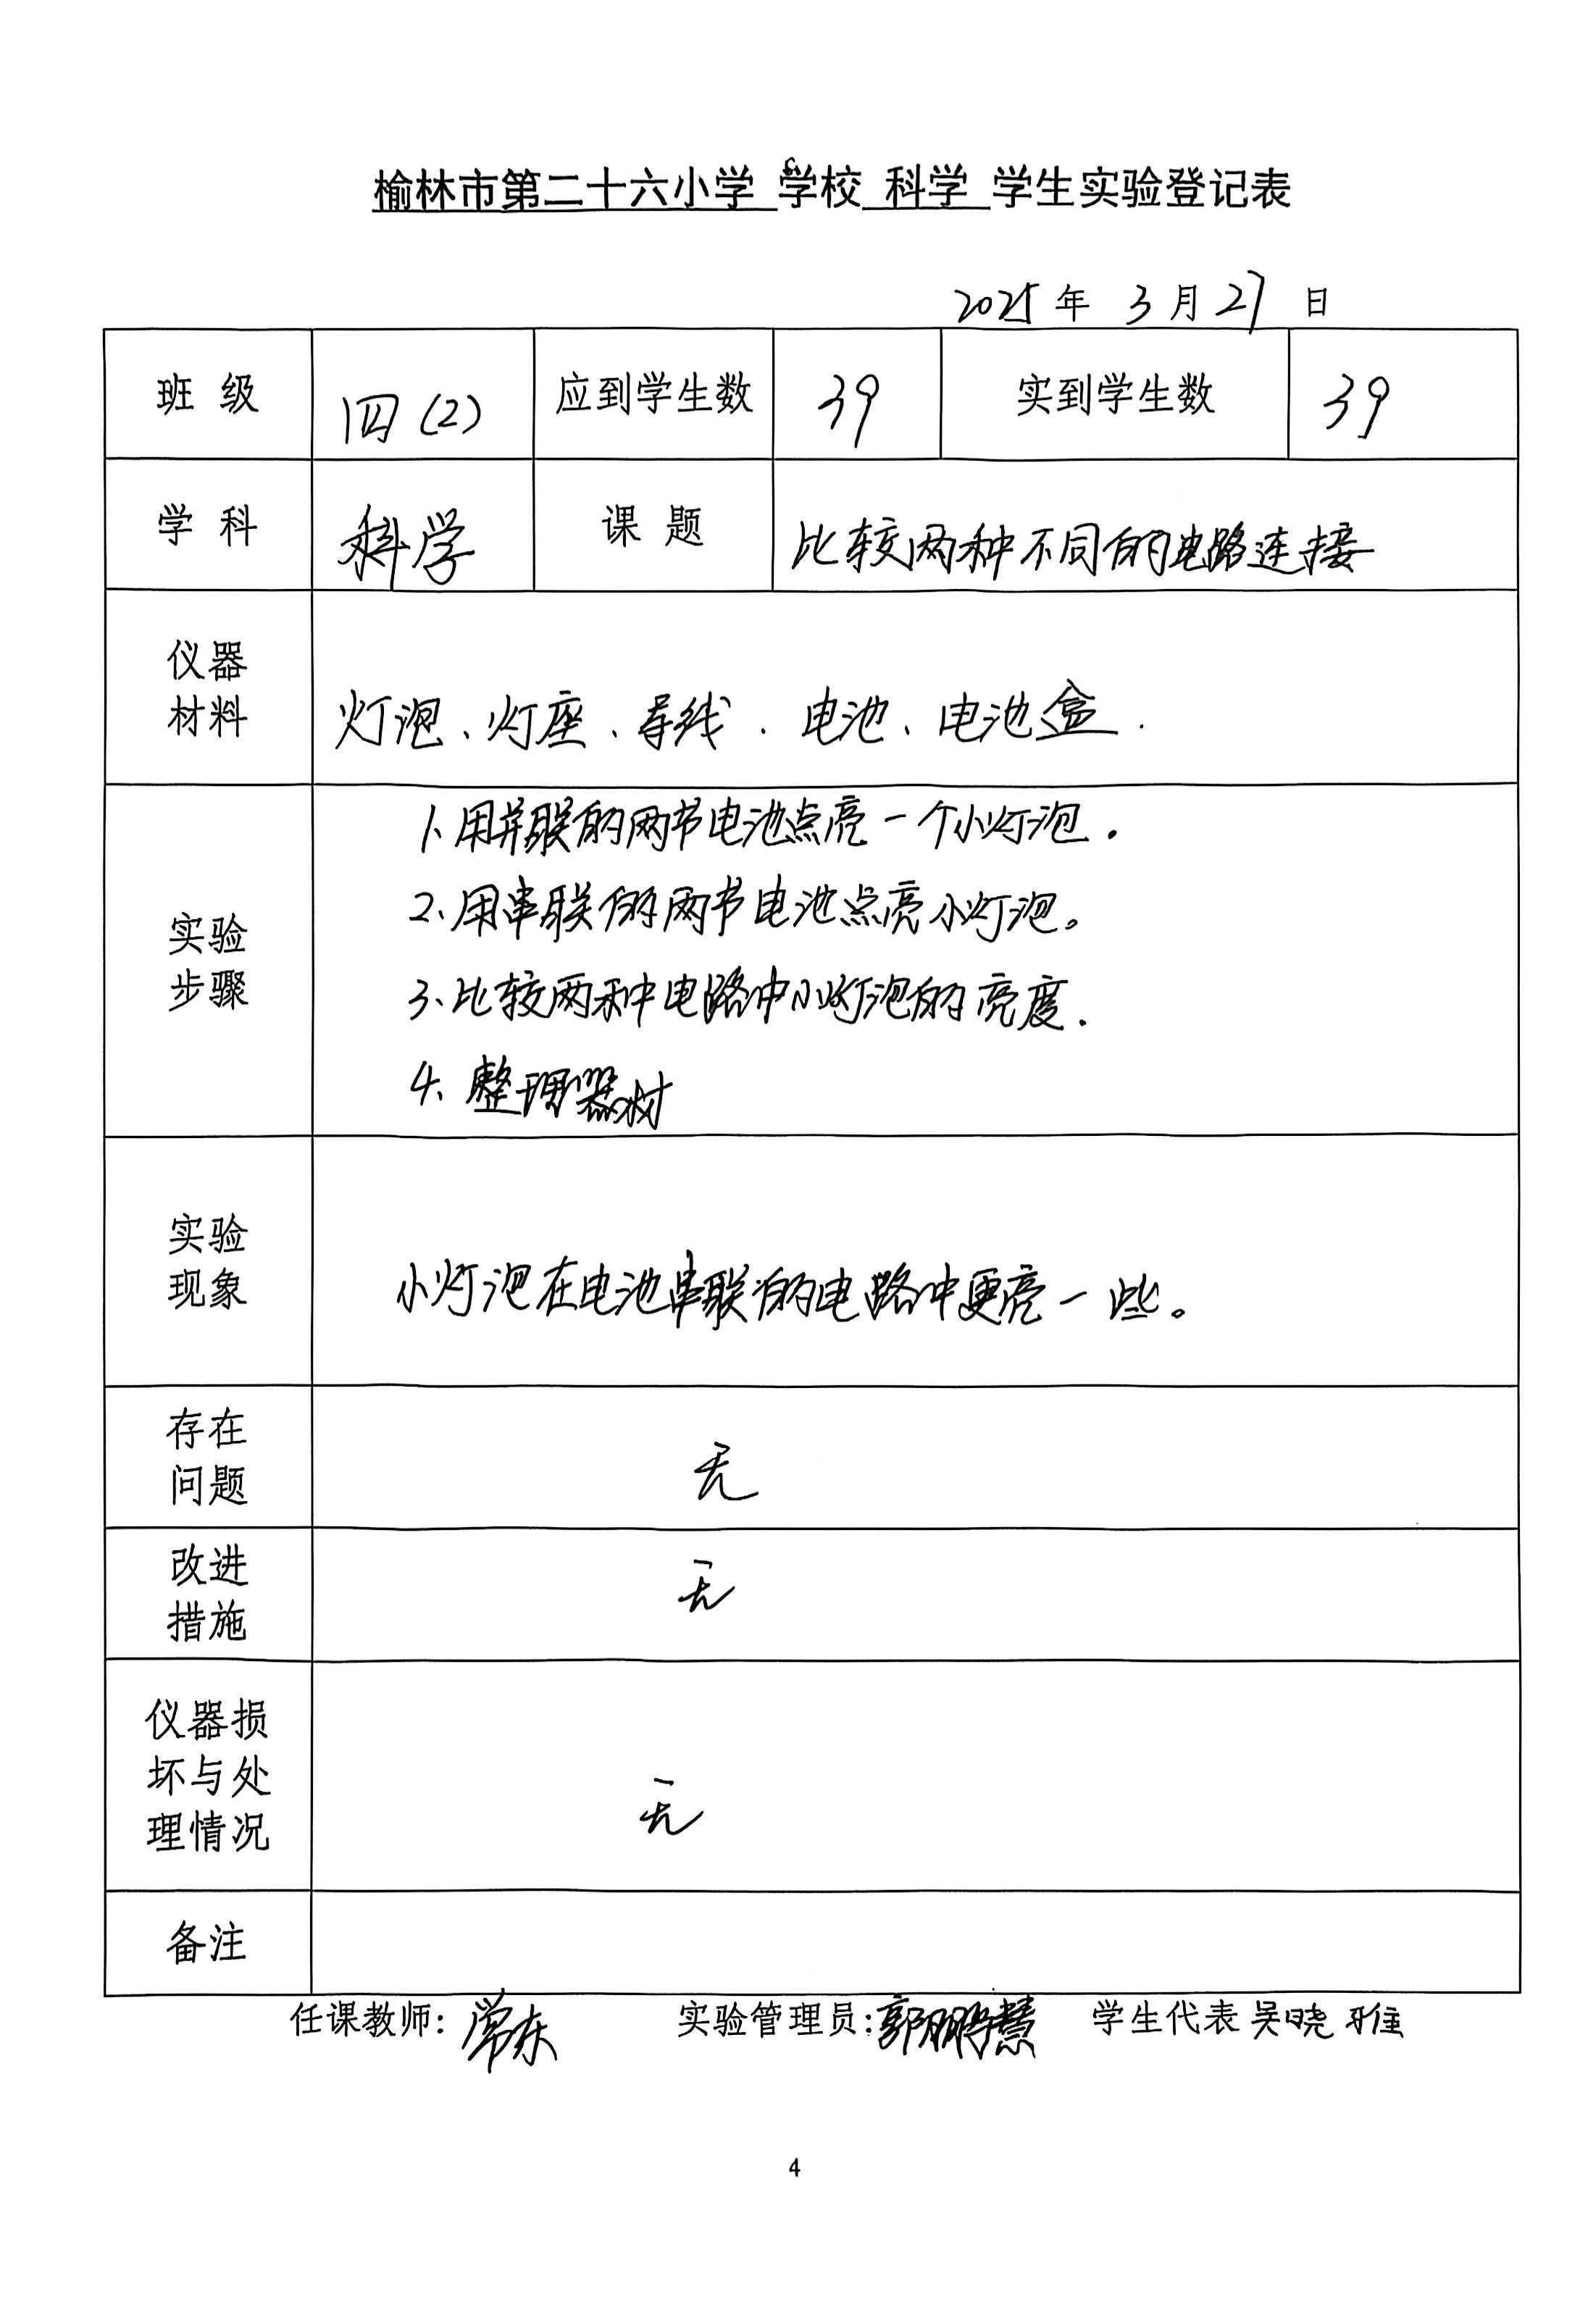 榆林市第二十六小学 学校 科学 学生实验登记表
2025 年 3 月 27 日
班 级 四(2) 应到学生数 39 实到学生数 39
学 科 科学 课 题 比较两种不同的电路连接
仪器
材料
灯泡、灯座、导线、电池、电池盒.
实验
步骤
1、用并联的两节电池点亮一个小灯泡.
2、用串联的两节电池点亮小灯泡。
3、比较两种电路中小灯泡的亮度.
4、整理器材
实验
现象
小灯泡在电池串联的电路中更亮一些。
存在
问题
无
改进
措施
无
仪器损
坏与处
理情况
无
备注
任课教师: 常东 实验管理员: 郭鹏慧 学生代表 吴晓雅
4